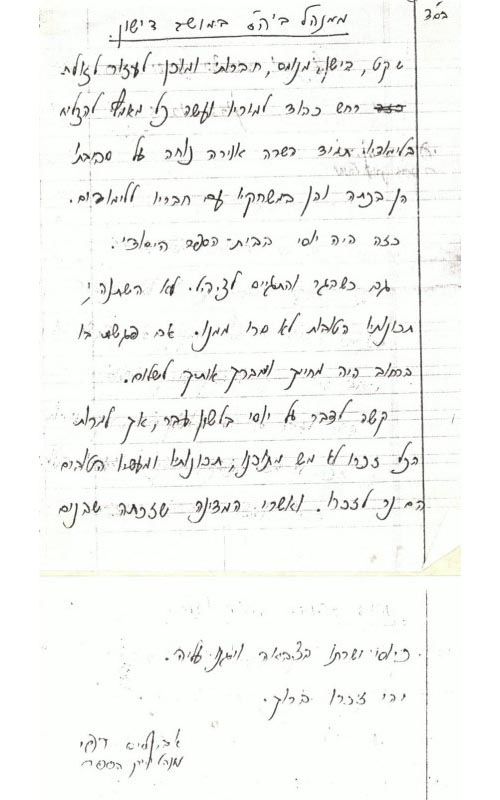 בס"ד
ממנהל ביה"ס במושב דישון.
שקט, ביישן, מנומס, חברותי ומוכן לעזור לזולת
רחש כבוד למוריו ועשה כל מאמץ להצליח
בלימודיו. תמיד השרה אוירה נוחה על סביבתו
הן בכתה והן במשחקיו עם חבריו ללימודים.
כזה היה יוסי בבית-הספר היסודי.
גם כשבגר והתגייס לצה"ל. לא השתנה;
תכונותיו הטובות לא סרו ממנו. אם פגשת בו
ברחוב היה מחייך ומברך אותך לשלום.
קשה לדבר על יוסי בלשון עבר, אך למרות
הכל זכרו לא מש מתוכנו; תכונותיו ומעשיו הטובים
הם נר לזכרו. ואשרי המדינה שזכתה שבנים
כיוסי ישרתו בצבאה ויגנו עליה.
יהי זכרו ברוך.
מנהל בית הספר